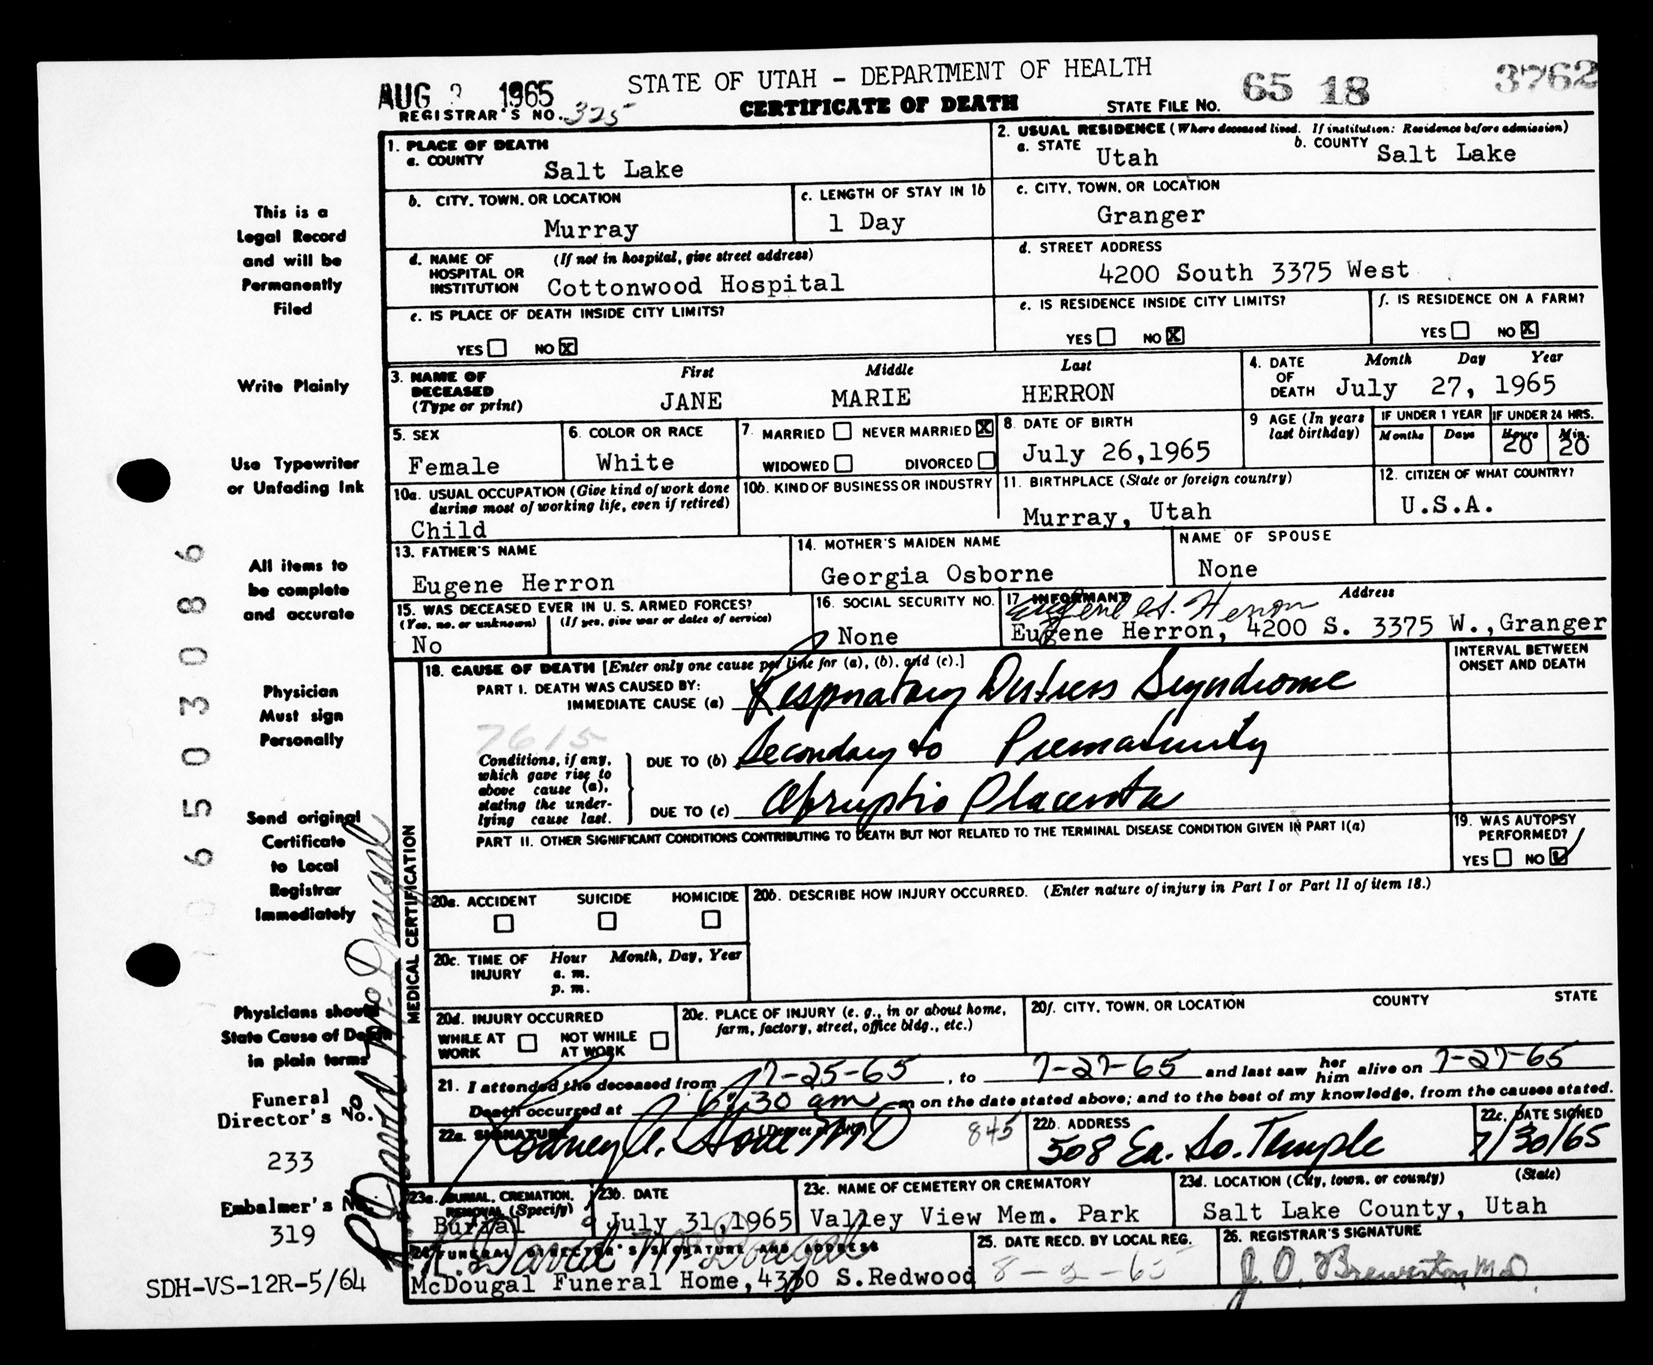 AUG 2 1965
STATE OF UTAH - DEPARTMENT OF HEALTH
65 18 3762
REGISTRAR'S NO. 325
CERTIFICATE OF DEATH
STATE FILE NO.
1. PLACE OF DEATH
a. COUNTY
Salt Lake
2. USUAL RESIDENCE (Where deceased lived. If institution: Residence before admission)
a. STATE Utah
b. COUNTY Salt Lake
b. CITY, TOWN, OR LOCATION
Murray
c. LENGTH OF STAY IN 1b
1 Day
c. CITY, TOWN, OR LOCATION
Granger
d. NAME OF HOSPITAL OR INSTITUTION
(If not in hospital, give street address)
Cottonwood Hospital
d. STREET ADDRESS
4200 South 3375 West
e. IS PLACE OF DEATH INSIDE CITY LIMITS?
YES NO X
e. IS RESIDENCE INSIDE CITY LIMITS?
YES NO X
f. IS RESIDENCE ON A FARM?
YES NO X
3. NAME OF DECEASED (Type or print)
First Middle Last
JANE MARIE HERRON
4. DATE OF DEATH
Month Day Year
July 27, 1965
5. SEX
Female
6. COLOR OR RACE
White
7. MARRIED NEVER MARRIED X
WIDOWED DIVORCED
8. DATE OF BIRTH
July 26,1965
9 AGE (In years last birthday)
IF UNDER 1 YEAR
Months Days
IF UNDER 24 HRS.
Hours Min.
20 20
10a. USUAL OCCUPATION (Give kind of work done during most of working life, even if retired)
Child
10b. KIND OF BUSINESS OR INDUSTRY
11. BIRTHPLACE (State or foreign country)
Murray, Utah
12. CITIZEN OF WHAT COUNTRY?
U.S.A.
13. FATHER'S NAME
Eugene Herron
14. MOTHER'S MAIDEN NAME
Georgia Osborne
NAME OF SPOUSE
None
15. WAS DECEASED EVER IN U. S. ARMED FORCES?
(Yes, no, or unknown) (If yes, give war or dates of service)
No
16. SOCIAL SECURITY NO.
None
17 INFORMANT Address
Eugene Herron
Eugene Herron, 4200 S. 3375 W.,Granger
MEDICAL CERTIFICATION
18. CAUSE OF DEATH [Enter only one cause per line for (a), (b), and (c).]
INTERVAL BETWEEN ONSET AND DEATH
PART I. DEATH WAS CAUSED BY:
IMMEDIATE CAUSE (a) Respiratory Distress Syndrome
7615
Conditions, if any, which gave rise to above cause (a), stating the underlying cause last.
DUE TO (b) Secondary to Prematurity
DUE TO (c) Abruptio Placenta
PART II. OTHER SIGNIFICANT CONDITIONS CONTRIBUTING TO DEATH BUT NOT RELATED TO THE TERMINAL DISEASE CONDITION GIVEN IN PART I(a)
19. WAS AUTOPSY PERFORMED?
YES NO
20a. ACCIDENT SUICIDE HOMICIDE
20b. DESCRIBE HOW INJURY OCCURRED. (Enter nature of injury in Part I or Part II of item 18.)
20c. TIME OF INJURY
Hour Month, Day, Year
a. m.
p. m.
20d. INJURY OCCURRED
WHILE AT WORK NOT WHILE AT WORK
20e. PLACE OF INJURY (e. g., in or about home, farm, factory, street, office bldg., etc.)
20f. CITY, TOWN, OR LOCATION COUNTY STATE
21. I attended the deceased from 7-25-65, to 7-27-65 and last saw her him alive on 7-27-65
Death occurred at 6:30 am m on the date stated above; and to the best of my knowledge, from the causes stated.
22a. SIGNATURE (Degree or title)
Rodney MD
845
22b. ADDRESS
508 Ea. So. Temple
22c. DATE SIGNED
7/30/65
23a. BURIAL, CREMATION, REMOVAL (Specify)
Burial
23b. DATE
July 31,1965
23c. NAME OF CEMETERY OR CREMATORY
Valley View Mem. Park
23d. LOCATION (City, town, or county) (State)
Salt Lake County, Utah
24. FUNERAL DIRECTOR'S SIGNATURE AND ADDRESS
R. David McDougal
McDougal Funeral Home,4330 S.Redwood
25. DATE RECD. BY LOCAL REG.
8-2-65
26. REGISTRAR'S SIGNATURE
This is a
Legal Record
and will be
Permanently
Filed
Write Plainly
Use Typewriter
or Unfading Ink
All items to
be complete
and accurate
Physician
Must sign
Personally
Send original
Certificate
to Local
Registrar
Immediately
Physicians should
State Cause of Death
in plain terms
Funeral
Director's No.
233
Embalmer's No.
319
SDH-VS-12R-5/64
06503086
R. David McDougal